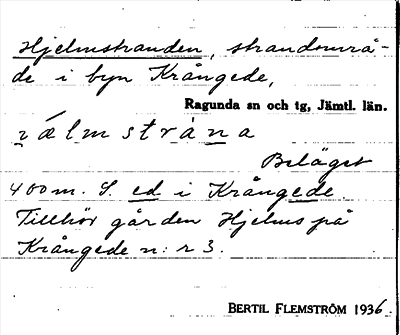 Hjelmstranden, strandområ-
de i byn Krångede,
Ragunda sn och tg, Jämtl. län.
Beläget
400 m. S. ed i Krångede.
Tillhör gården Hjelms på
Krångede n:r 3.
BERTIL FLEMSTRÖM 1936.